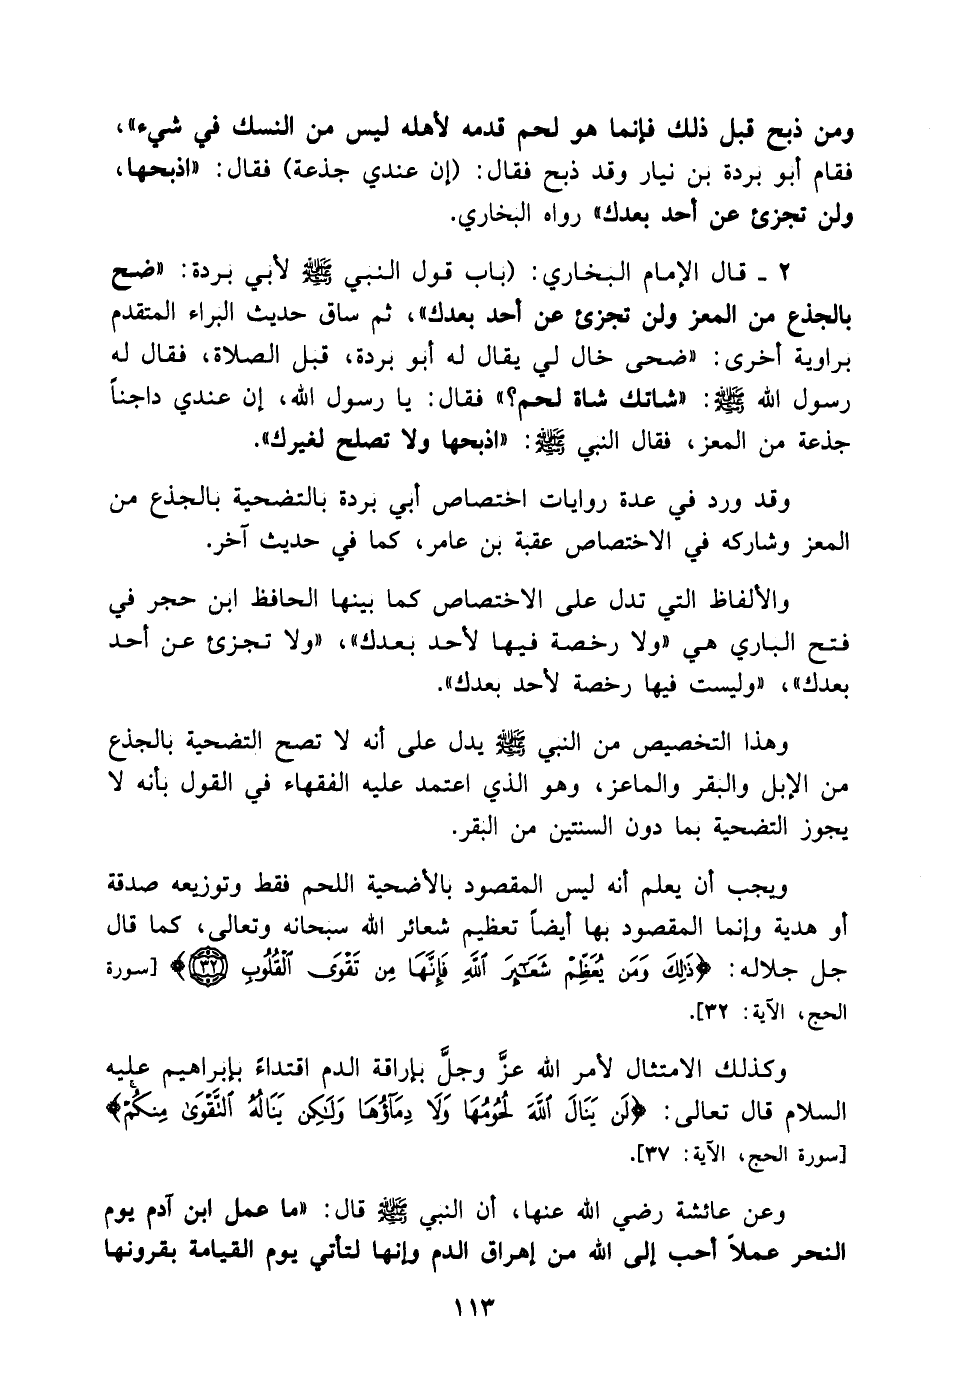 ومن ذبح قبل ذلك فإنما هو لحم قدمه لأهله ليس من النسك في شيء»،
فقام أبو بردة بن نيار وقد ذبح فقال: (إن عندي جذعة) فقال: «اذبحها،
ولن تجزئ عن أحد بعدك» رواه البخاري.
٢ ـ قال الإمام البخاري: (باب قول النبي ﷺ لأبي بردة: «ضح
بالجذع من المعز ولن تجزئ عن أحد بعدك»، ثم ساق حديث البراء المتقدم
براوية أخرى: «ضحى خال لي يقال له أبو بردة، قبل الصلاة، فقال له
رسول الله ﷺ: «شاتك شاة لحم؟» فقال: يا رسول الله، إن عندي داجناً
جذعة من المعز، فقال النبي ﷺ: «اذبحها ولا تصلح لغيرك».
وقد ورد في عدة روايات اختصاص أبي بردة بالتضحية بالجذع من
المعز وشاركه في الاختصاص عقبة بن عامر، كما في حديث آخر.
والألفاظ التي تدل على الاختصاص كما بينها الحافظ ابن حجر في
فتح الباري هي «ولا رخصة فيها لأحد بعدك»، «ولا تجزئ عن أحد
بعدك»، «وليست فيها رخصة لأحد بعدك».
وهذا التخصيص من النبي ﷺ يدل على أنه لا تصح التضحية بالجذع
من الإبل والبقر والماعز، وهو الذي اعتمد عليه الفقهاء في القول بأنه لا
يجوز التضحية بما دون السنتين من البقر.
ويجب أن يعلم أنه ليس المقصود بالأضحية اللحم فقط وتوزيعه صدقة
أو هدية وإنما المقصود بها أيضاً تعظيم شعائر الله سبحانه وتعالى، كما قال
جل جلاله: ﴿ذَٰلِكَ وَمَن يُعَظِّمْ شَعَـٰٓئِرَ ٱللَّهِ فَإِنَّهَا مِن تَقْوَى ٱلْقُلُوبِ ٣٢﴾ [سورة
الحج، الآية: ٣٢].
وكذلك الامتثال لأمر الله عزَّ وجلَّ بإراقة الدم اقتداءً بإبراهيم عليه
السلام قال تعالى: ﴿لَن يَنَالَ ٱللَّهَ لُحُومُهَا وَلَا دِمَآؤُهَا وَلَـٰكِن يَنَالُهُ ٱلتَّقْوَىٰ مِنكُمْ﴾
[سورة الحج، الآية: ٣٧].
وعن عائشة رضي الله عنها، أن النبي ﷺ قال: «ما عمل ابن آدم يوم
النحر عملاً أحب إلى الله من إهراق الدم وإنها لتأتي يوم القيامة بقرونها
١١٣